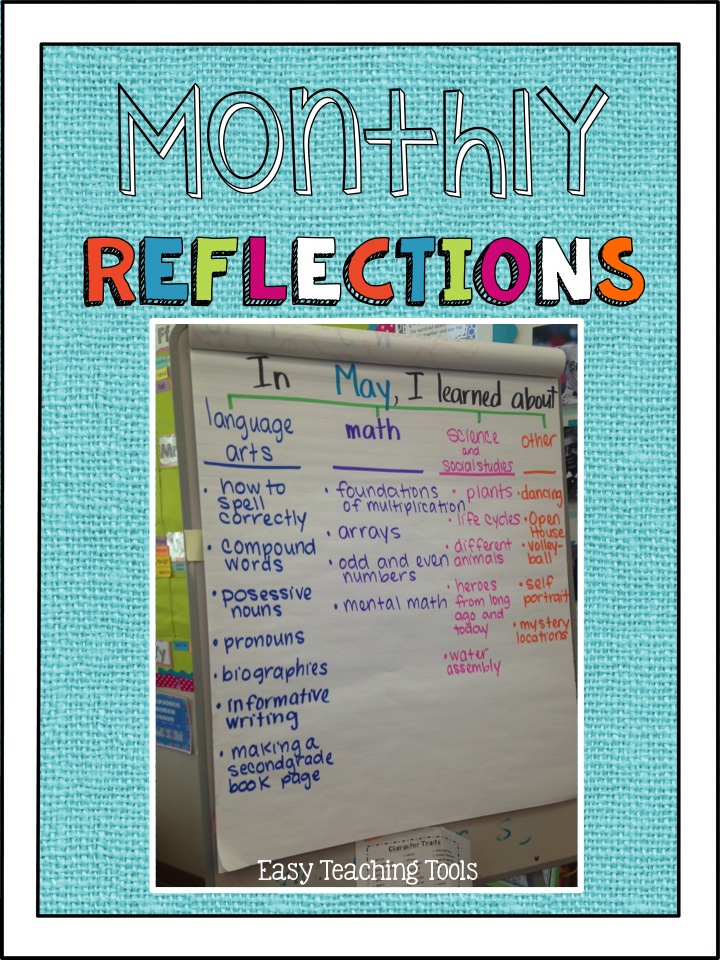 Monthly
REFLECTIONS
In May, I learned about
language
arts
• how to
spell
correctly
• compound
words
• posessive
nouns
• pronouns
• biographies
• informative
writing
• making a
secondgrade
book page
math
• foundations
of multiplication
• arrays
• odd and even
numbers
• mental math
science
and
social studies
• plants
• life cycles
• different
animals
• heroes
from long
ago and
today
• water
assembly
other
• dancing
• Open
House
• volley-
ball
• self
portrait
• mystery
locations
Character Traits
Easy Teaching Tools